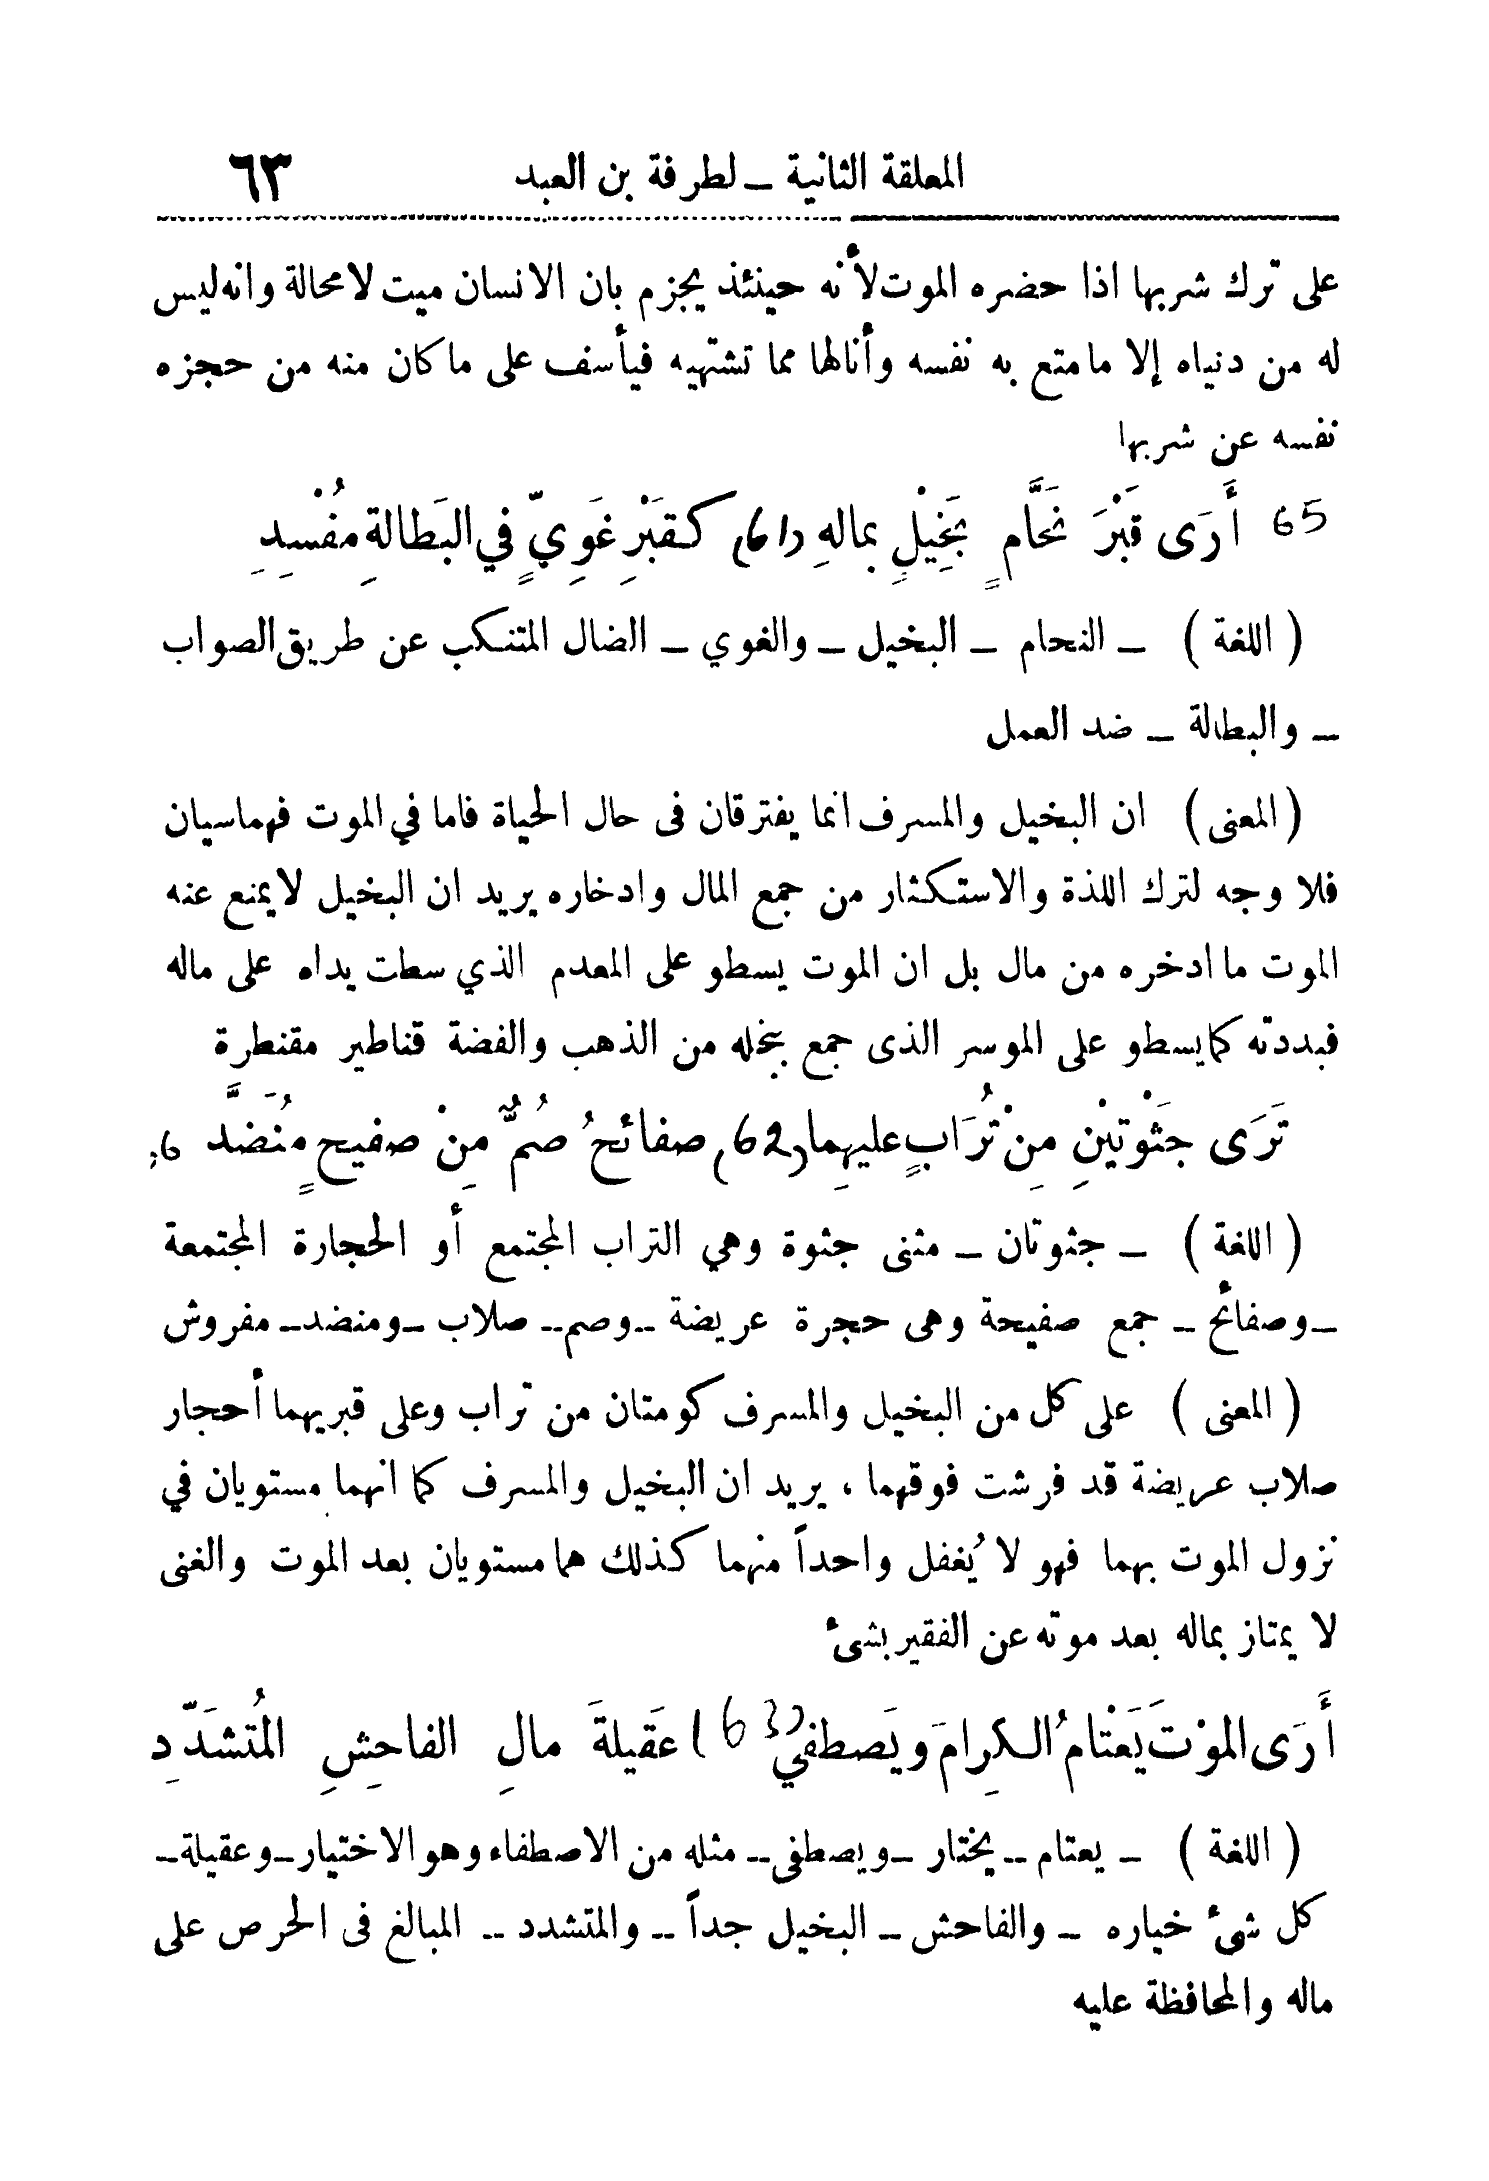 المعلقة الثانية ـ لطرفة بن العبد ٦٣
على ترك شربها اذا حضره الموت لأنه حينئذ يجزم بان الانسان ميت لا محالة وانه ليس
له من دنياه إلا ما متع به نفسه وأنالها مما تشتهيه فيأسف على ما كان منه من حجزه
نفسه عن شربها
65 أَرَى قَبْرَ نَحَّامٍ بَخِيْلٍ بمالهِ (61) كَقَبْرِ غَوِيٍّ في البَطالةِ مُفْسِدِ
( اللغة ) ـ النحام ـ البخيل ـ والغوي ـ الضال المتنكب عن طريق الصواب
ـ والبطالة ـ ضد العمل
( المعنى ) ان البخيل والمسرف انما يفترقان فى حال الحياة فاما في الموت فهما سيان
فلا وجه لترك اللذة والاستكثار من جمع المال وادخاره يريد ان البخيل لا يمنع عنه
الموت ما ادخره من مال بل ان الموت يسطو على المعدم الذي سطت يداه على ماله
فبددته كما يسطو على الموسر الذى جمع بخله من الذهب والفضة قناطير مقنطرة
تَرَى جَثْوَتَيْنِ مِنْ تُرَابٍ عليهِما (62) صفائحُ صُمٌّ مِنْ صفيحٍ مُنَضَّد 6
( اللغة ) ـ جثوتان ـ مثنى جثوة وهي التراب المجتمع أو الحجارة المجتمعة
ـ وصفائح ـ جمع صفيحة وهى حجرة عريضة ـ وصم ـ صلاب ـ ومنضد ـ مفروش
( المعنى ) على كل من البخيل والمسرف كومتان من تراب وعلى قبريهما أحجار
صلاب عريضة قد فرشت فوقهما ، يريد ان البخيل والمسرف كما انهما مستويان في
نزول الموت بهما فهو لا يُغفل واحداً منهما كذلك هما مستويان بعد الموت والغنى
لا يمتاز بماله بعد موته عن الفقير بشىء
أَرَى الموْتَ يَعْتامُ الكِرامَ ويَصطفي (63) عَقيلةَ مالِ الفاحِشِ المُتشَدّدِ
( اللغة ) ـ يعتام ـ يختار ـ ويصطفى ـ مثله من الاصطفاء وهو الاختيار ـ وعقيلة ـ
كل شىء خياره ـ والفاحش ـ البخيل جداً ـ والمتشدد ـ المبالغ فى الحرص على
ماله والمحافظة عليه